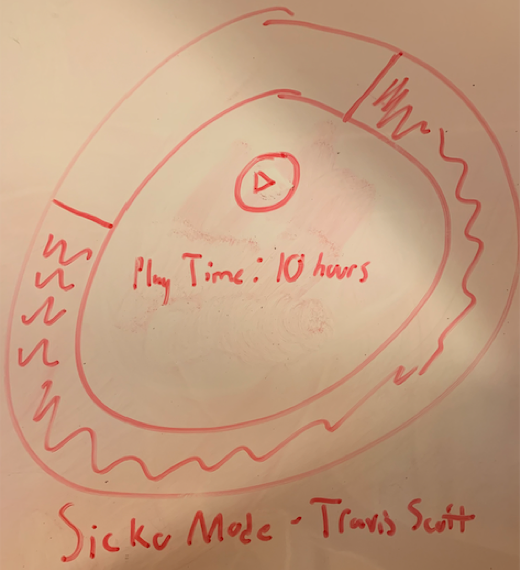 Play Time: 10 hours
Sicko Mode - Travis Scott